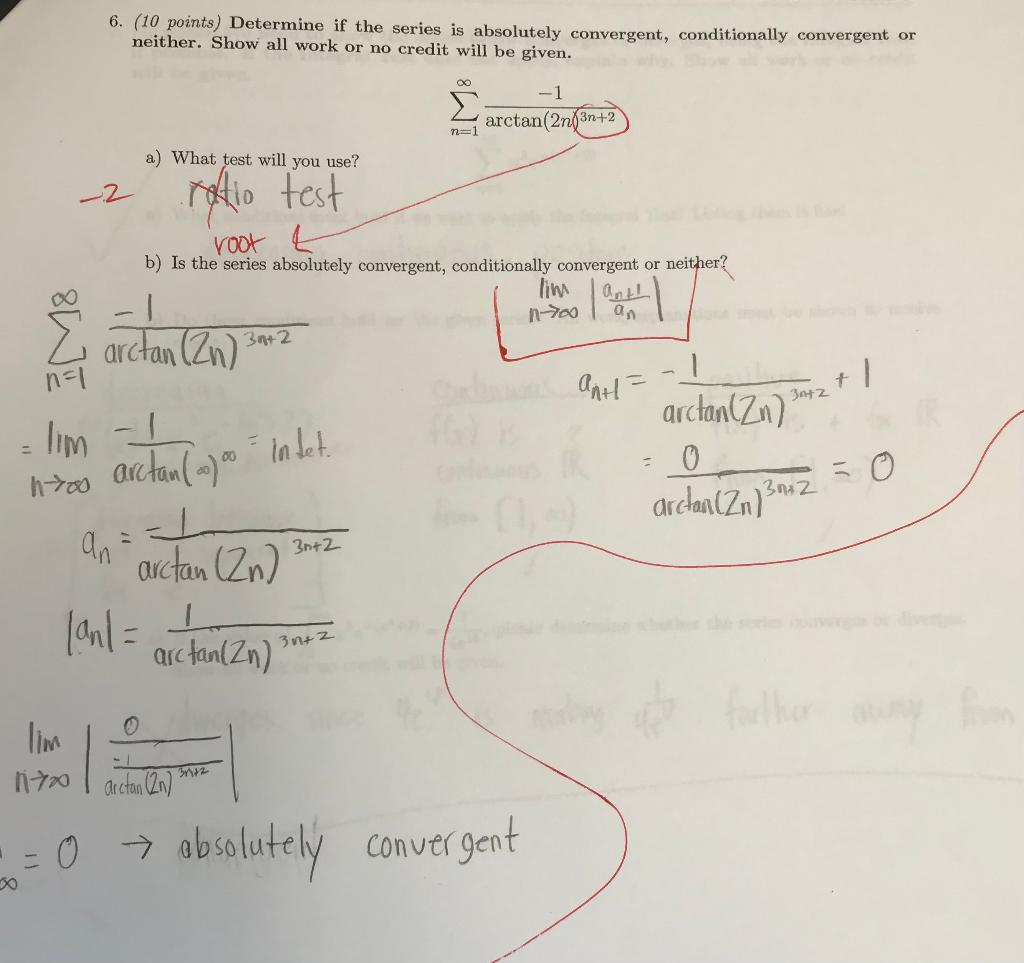 6. (10 points) Determine if the series is absolutely convergent, conditionally convergent or
neither. Show all work or no credit will be given.
∞
∑ −1 / arctan(2n)^{3n+2}
n=1
a) What test will you use?
−2 ratio test
root
b) Is the series absolutely convergent, conditionally convergent or neither?
lim n→∞ |a_{n+1} / a_n|
∞
∑ −1 / arctan(2n)^{3n+2}
n=1
a_{n+1} = −1 / arctan(2n)^{3n+2} + 1
= lim n→∞ −1 / arctan(∞)^∞ = indet.
= 0 / arctan(2n)^{3n+2} = 0
a_n = −1 / arctan(2n)^{3n+2}
|a_n| = 1 / arctan(2n)^{3n+2}
lim n→∞ | 0 / (−1 / arctan(2n)^{3n+2}) |
= 0 → absolutely convergent
∞